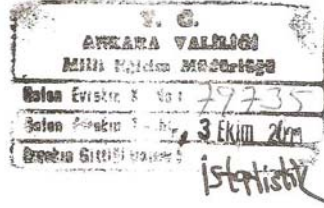 T. C.
ANKARA VALİLİĞİ
Millî Eğitim Müdürlüğü
Gelen Evrakın 79735
Gelen Evrakın 3 Ekim
Evrakın Gittiği
istatistik